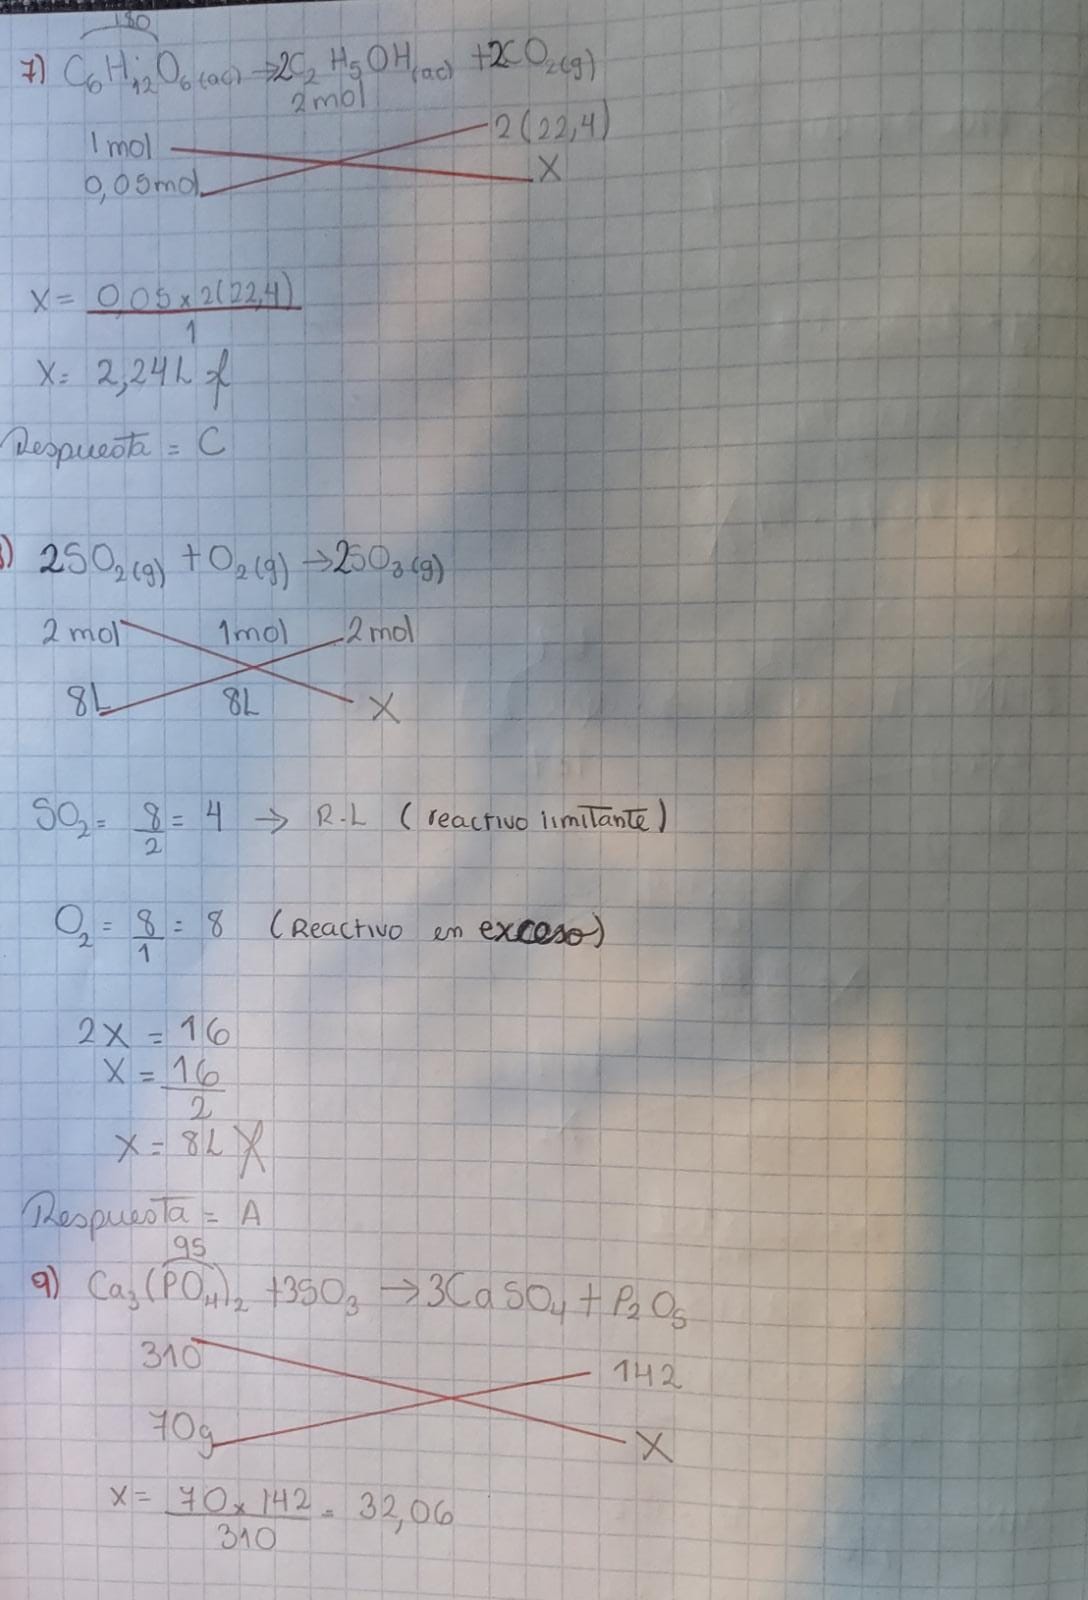 180
7) C₆H₁₂O₆(ac) →2C₂H₅OH(ac) +2CO₂(g)
2mol
1mol 2(22,4)
0,05mol X
X = 0,05 x 2(22,4)
1
X= 2,24L
Respuesta = C
) 2SO₂(g) + O₂(g) →2SO₃(g)
2mol 1mol 2mol
8L 8L X
SO₂= 8/2 = 4 → R.L (reactivo limitante)
O₂ = 8/1 = 8 (Reactivo en exceso)
2X = 16
X = 16
2
X= 8L
Respuesta = A
95
9) Ca₃(PO₄)₂ +3SO₃ →3CaSO₄ + P₂O₅
310 142
70g X
X= 70x142 = 32,06
310